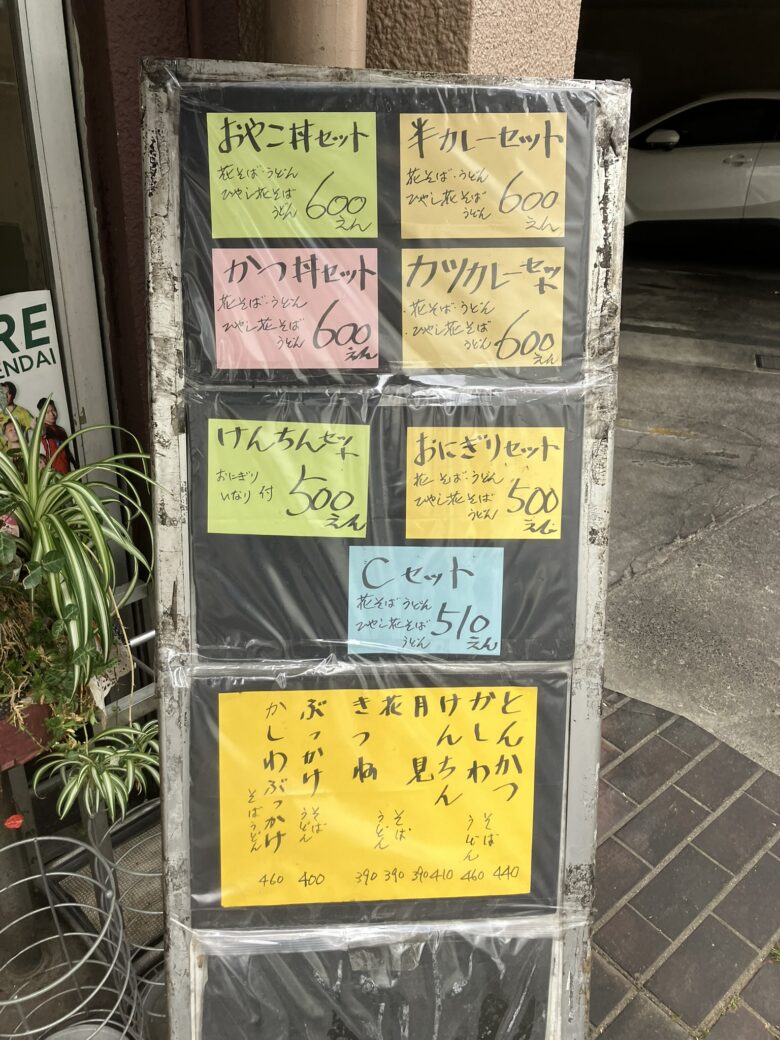 おやこ丼セット
花そば・うどん
ひやし花そば
うどん
600
えん
半カレーセット
花そば・うどん
ひやし花そば
うどん
600
えん
かつ丼セット
花そば・うどん
ひやし花そば
うどん
600
えん
カツカレーセット
・花そば・うどん
・ひやし花そば
うどん
600
えん
けんちんセット
おにぎり
いなり付
500
えん
おにぎりセット
花そば・うどん
ひやし花そば
うどん
500
えん
Cセット
花そばうどん
ひやし花そば
うどん
510
えん
とんかつ
かしわ
けんちん
月見
花
きつね
ぶっかけ
かしわぶっかけ
そば
うどん
そば
うどん
そば
うどん
そばうどん
460 400 390 390 390 410 460 440
RE
ENDAI